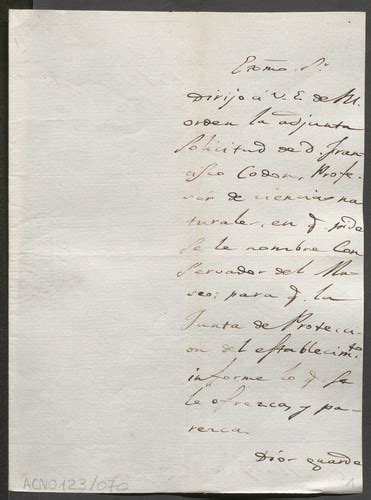 Exmo. Sr.
Dirijo á V.E. de R.
orden la adjunta
solicitud de D. Fran-
cisco Codon, Profe-
sor de ciencias na-
turales, en q. pide
se le nombre Con
servador del Mu-
seo; para q. la
Junta de Protecci-
on del establecimto.
informe lo q. se
le ofrezca, y pa-
rezca.
Dios guarde
ACN0123/070
1